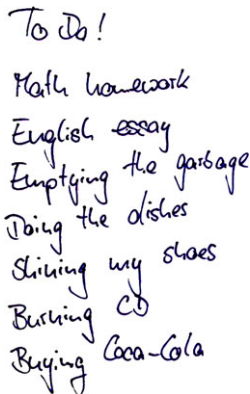 To Do!
Math homework
English essay
Emptying the garbage
Doing the dishes
Shining my shoes
Burning CD
Buying Coca-Cola